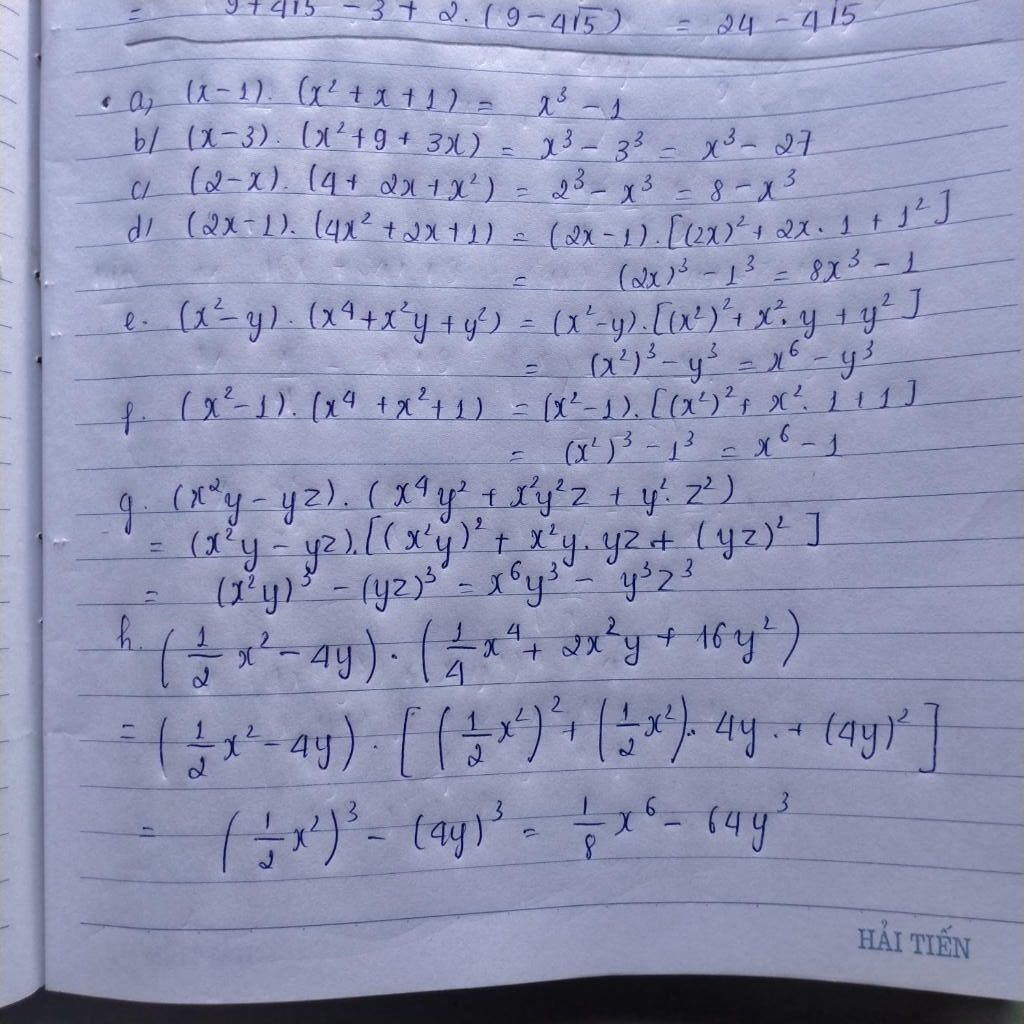 = 9 + 4√5 - 3 + 2. (9 - 4√5) = 24 - 4√5
a, (x-1). (x² + x + 1) = x³ - 1
b/ (x-3). (x² + 9 + 3x) = x³ - 3³ = x³ - 27
c/ (2-x). (4 + 2x + x²) = 2³ - x³ = 8 - x³
d/ (2x-1). (4x² + 2x + 1) = (2x-1). [(2x)² + 2x. 1 + 1²]
= (2x)³ - 1³ = 8x³ - 1
e. (x² - y). (x⁴ + x²y + y²) = (x² - y). [(x²)² + x². y + y²]
= (x²)³ - y³ = x⁶ - y³
f. (x² - 1). (x⁴ + x² + 1) = (x² - 1). [(x²)² + x². 1 + 1]
= (x²)³ - 1³ = x⁶ - 1
g. (x²y - yz). (x⁴y² + x²y²z + y². z²)
= (x²y - yz). [(x²y)² + x²y. yz + (yz)²]
= (x²y)³ - (yz)³ = x⁶y³ - y³z³
h. (1/2 x² - 4y). (1/4 x⁴ + 2x²y + 16y²)
= (1/2 x² - 4y). [(1/2 x²)² + (1/2 x²). 4y. + (4y)²]
= (1/2 x²)³ - (4y)³ = 1/8 x⁶ - 64y³
HẢI TIẾN